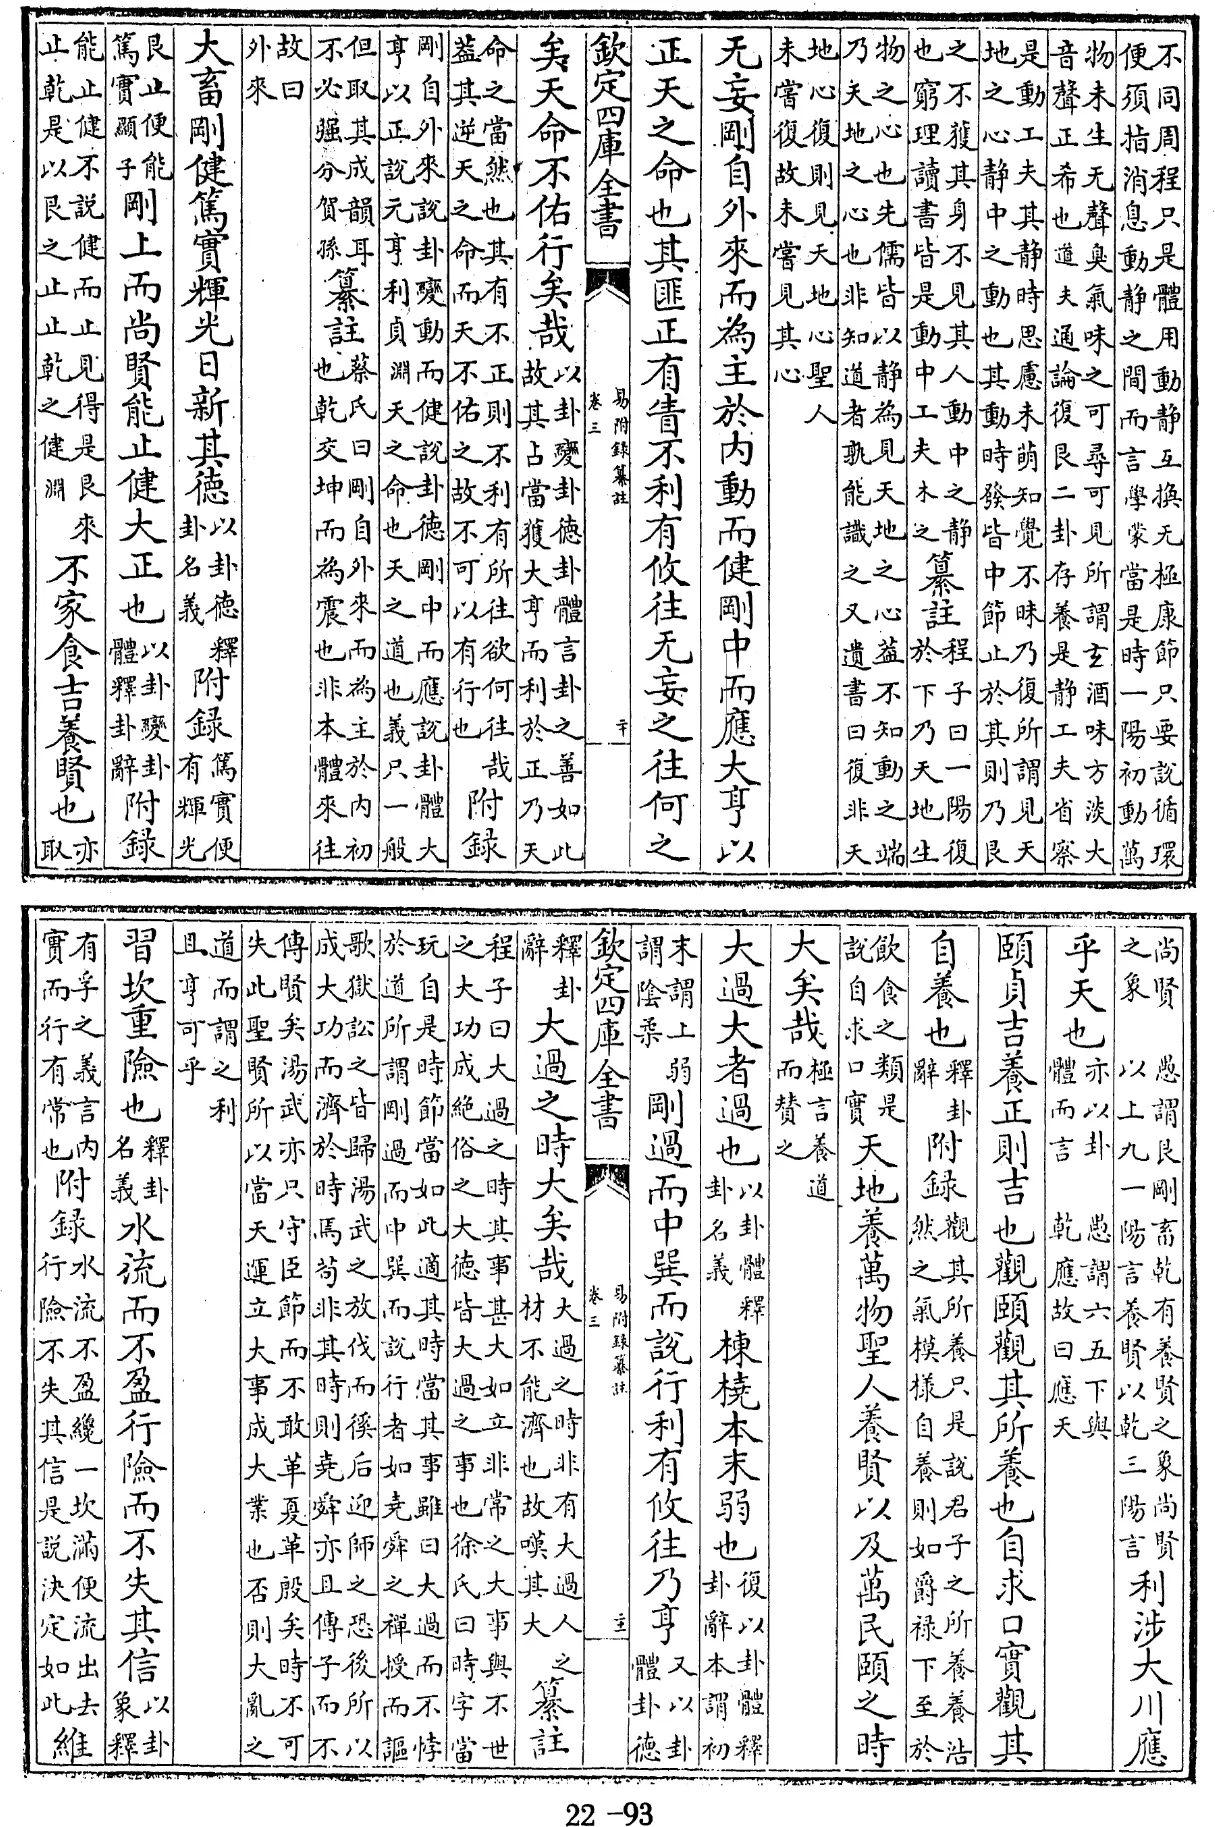 不同周程只是體用動静互換无極康節只要說循環
便須指消息動静之間而言學蒙當是時一陽初動萬
物未生无聲臭氣味之可尋可見所謂玄酒味方淡大
音聲正希也道夫通論復艮二卦存養是静工夫省察
是動工夫其静時思慮未萌知覺不昧乃復所謂見天
地之心静中之動也其動時發皆中節止於其則乃艮
之不獲其身不見其人動中之静
也窮理讀書皆是動中工夫木之
纂註
程子曰一陽復
於下乃天地生
物之心也先儒皆以静為見天地之心葢不知動之端
乃天地之心也非知道者孰能識之又遺書曰復非天
地心復則見天地心聖人
未嘗復故未嘗見其心
无妄剛自外來而為主於内動而健剛中而應大亨以
正天之命也其匪正有眚不利有攸往无妄之往何之
欽定四庫全書
易附錄纂註
卷三
二十
矣天命不佑行矣哉
以卦變卦德卦體言卦之善如此
故其占當獲大亨而利於正乃天
命之當然也其有不正則不利有所往欲何往哉
葢其逆天之命而天不佑之故不可以有行也
附錄
剛自外來說卦變動而健說卦德剛中而應說卦體大
亨以正說元亨利貞淵天之命也天之道也義只一般
但取其成韻耳
不必强分賀孫
纂註
蔡氏曰剛自外來而為主於内初
也乾交坤而為震也非本體來往
故曰
外來
大畜剛健篤實輝光日新其德
以卦德釋
卦名義
附錄
篤實便
有輝光
艮止便能
篤實顯子
剛上而尚賢能止健大正也
以卦變卦
體釋卦辭
附錄
能止健不說健而止見得是艮來
止乾是以艮之止止乾之健淵
不家食吉養賢也
亦
取
尚賢
之象
愚謂艮剛畜乾有養賢之象尚賢
以上九一陽言養賢以乾三陽言
利涉大川應
乎天也
亦以卦
體而言
愚謂六五下與
乾應故曰應天
頤貞吉養正則吉也觀頤觀其所養也自求口實觀其
自養也
釋卦
辭
附錄
觀其所養只是說君子之所養養浩
然之氣模樣自養則如爵禄下至於
飲食之類是
說自求口實
天地養萬物聖人養賢以及萬民頤之時
大矣哉
極言養道
而賛之
大過大者過也
以卦體釋
卦名義
棟橈本末弱也
復以卦體釋
卦辭本謂初
末謂上弱
謂陰柔
剛過而中巽而說行利有攸往乃亨
又以卦
體卦德
欽定四庫全書
易附錄纂註
卷三
釋卦
辭
大過之時大矣哉
大過之時非有大過人之
材不能濟也故嘆其大
纂註
程子曰大過之時其事甚大如立非常之大事興不世
之大功成絶俗之大德皆大過之事也徐氏曰時字當
玩自是時節當如此適其時當其事雖曰大過而不悖
於道所謂剛過而中巽而說行者如堯舜之禪授而謳
歌獄訟之皆歸湯武之放伐而徯后迎師之恐後所以
成大功而濟於時焉茍非其時則堯舜亦且傳子而不
傳賢矣湯武亦只守臣節而不敢革夏革殷矣時不可
失此聖賢所以當天運立大事成大業也否則大亂之
道而謂之利
且亨可乎
習坎重險也
釋卦
名義
水流而不盈行險而不失其信
以卦
象釋
有孚之義言内
實而行有常也
附錄
水流不盈纔一坎滿便流出去
行險不失其信是說決定如此
維